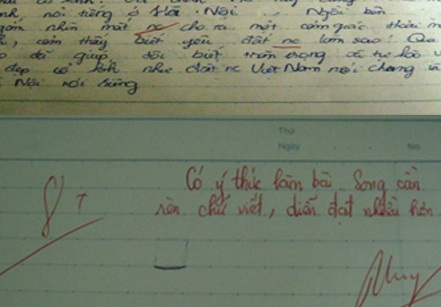 nh, nổi tiếng ở Hà Nội. Ngôi đền
nhìn mặt nc cho ta một cảm giác thoải m
, cảm thấy biết yêu đất nc lắm sao! Qua
đã giúp tôi biết trân trọng và tự hào
đẹp cổ kính như đất nc Việt Nam nói chung và
Nội nói riêng
Thứ
Ngày No.
8 T
Có ý thức làm bài. Song cần
rèn chữ viết, diễn đạt nhiều hơn
Huy